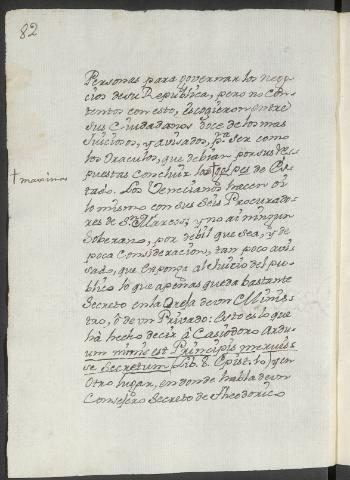 82
Personas para governar los nego-
cios de su Republica, pero no con-
tentos con esto, escogieron entre
sus Ciudadanos doce de los mas
Juiciosos, y avisados, pa. ser como
los Oraculos, que debian por sus res-
puestas concluir los † golpes de Es-
† maximas
tado. Los Venecianos hacen oy
lo mismo con sus seis Procurado-
res de Sn. Marcos; y no ai ningun
Soberano, por debil que sea, y de
poca consideracion, tan poco avi-
sado, que exponga al Juicio del pu-
blico lo que apenas queda bastante
Secreto en la Oreja de un Minis-
tro, ô de un Privado: Esto es lo que
hà hecho decir à Casiodoro Ardu-
um nimis est Principis meruis-
se Secretum (lib. 8. Epist. 10) y en
Otro lugar, en donde habla de un
Consejero Secreto de Theodorico